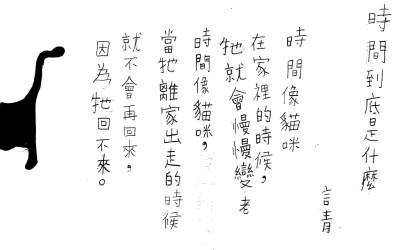 時間到底是什麼
言青
時間像貓咪
在家裡的時候，
牠就會慢慢變老
時間像貓咪，
當牠離家出走的時候
就不會再回來，
因為牠回不來。